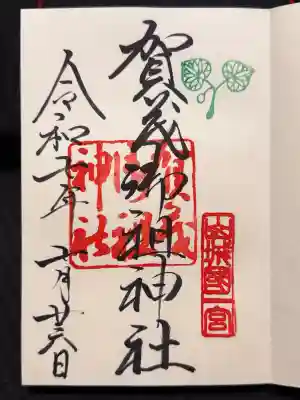 賀茂御祖神社
山城國一宮
賀茂
御祖
神社
令和 年 月 日